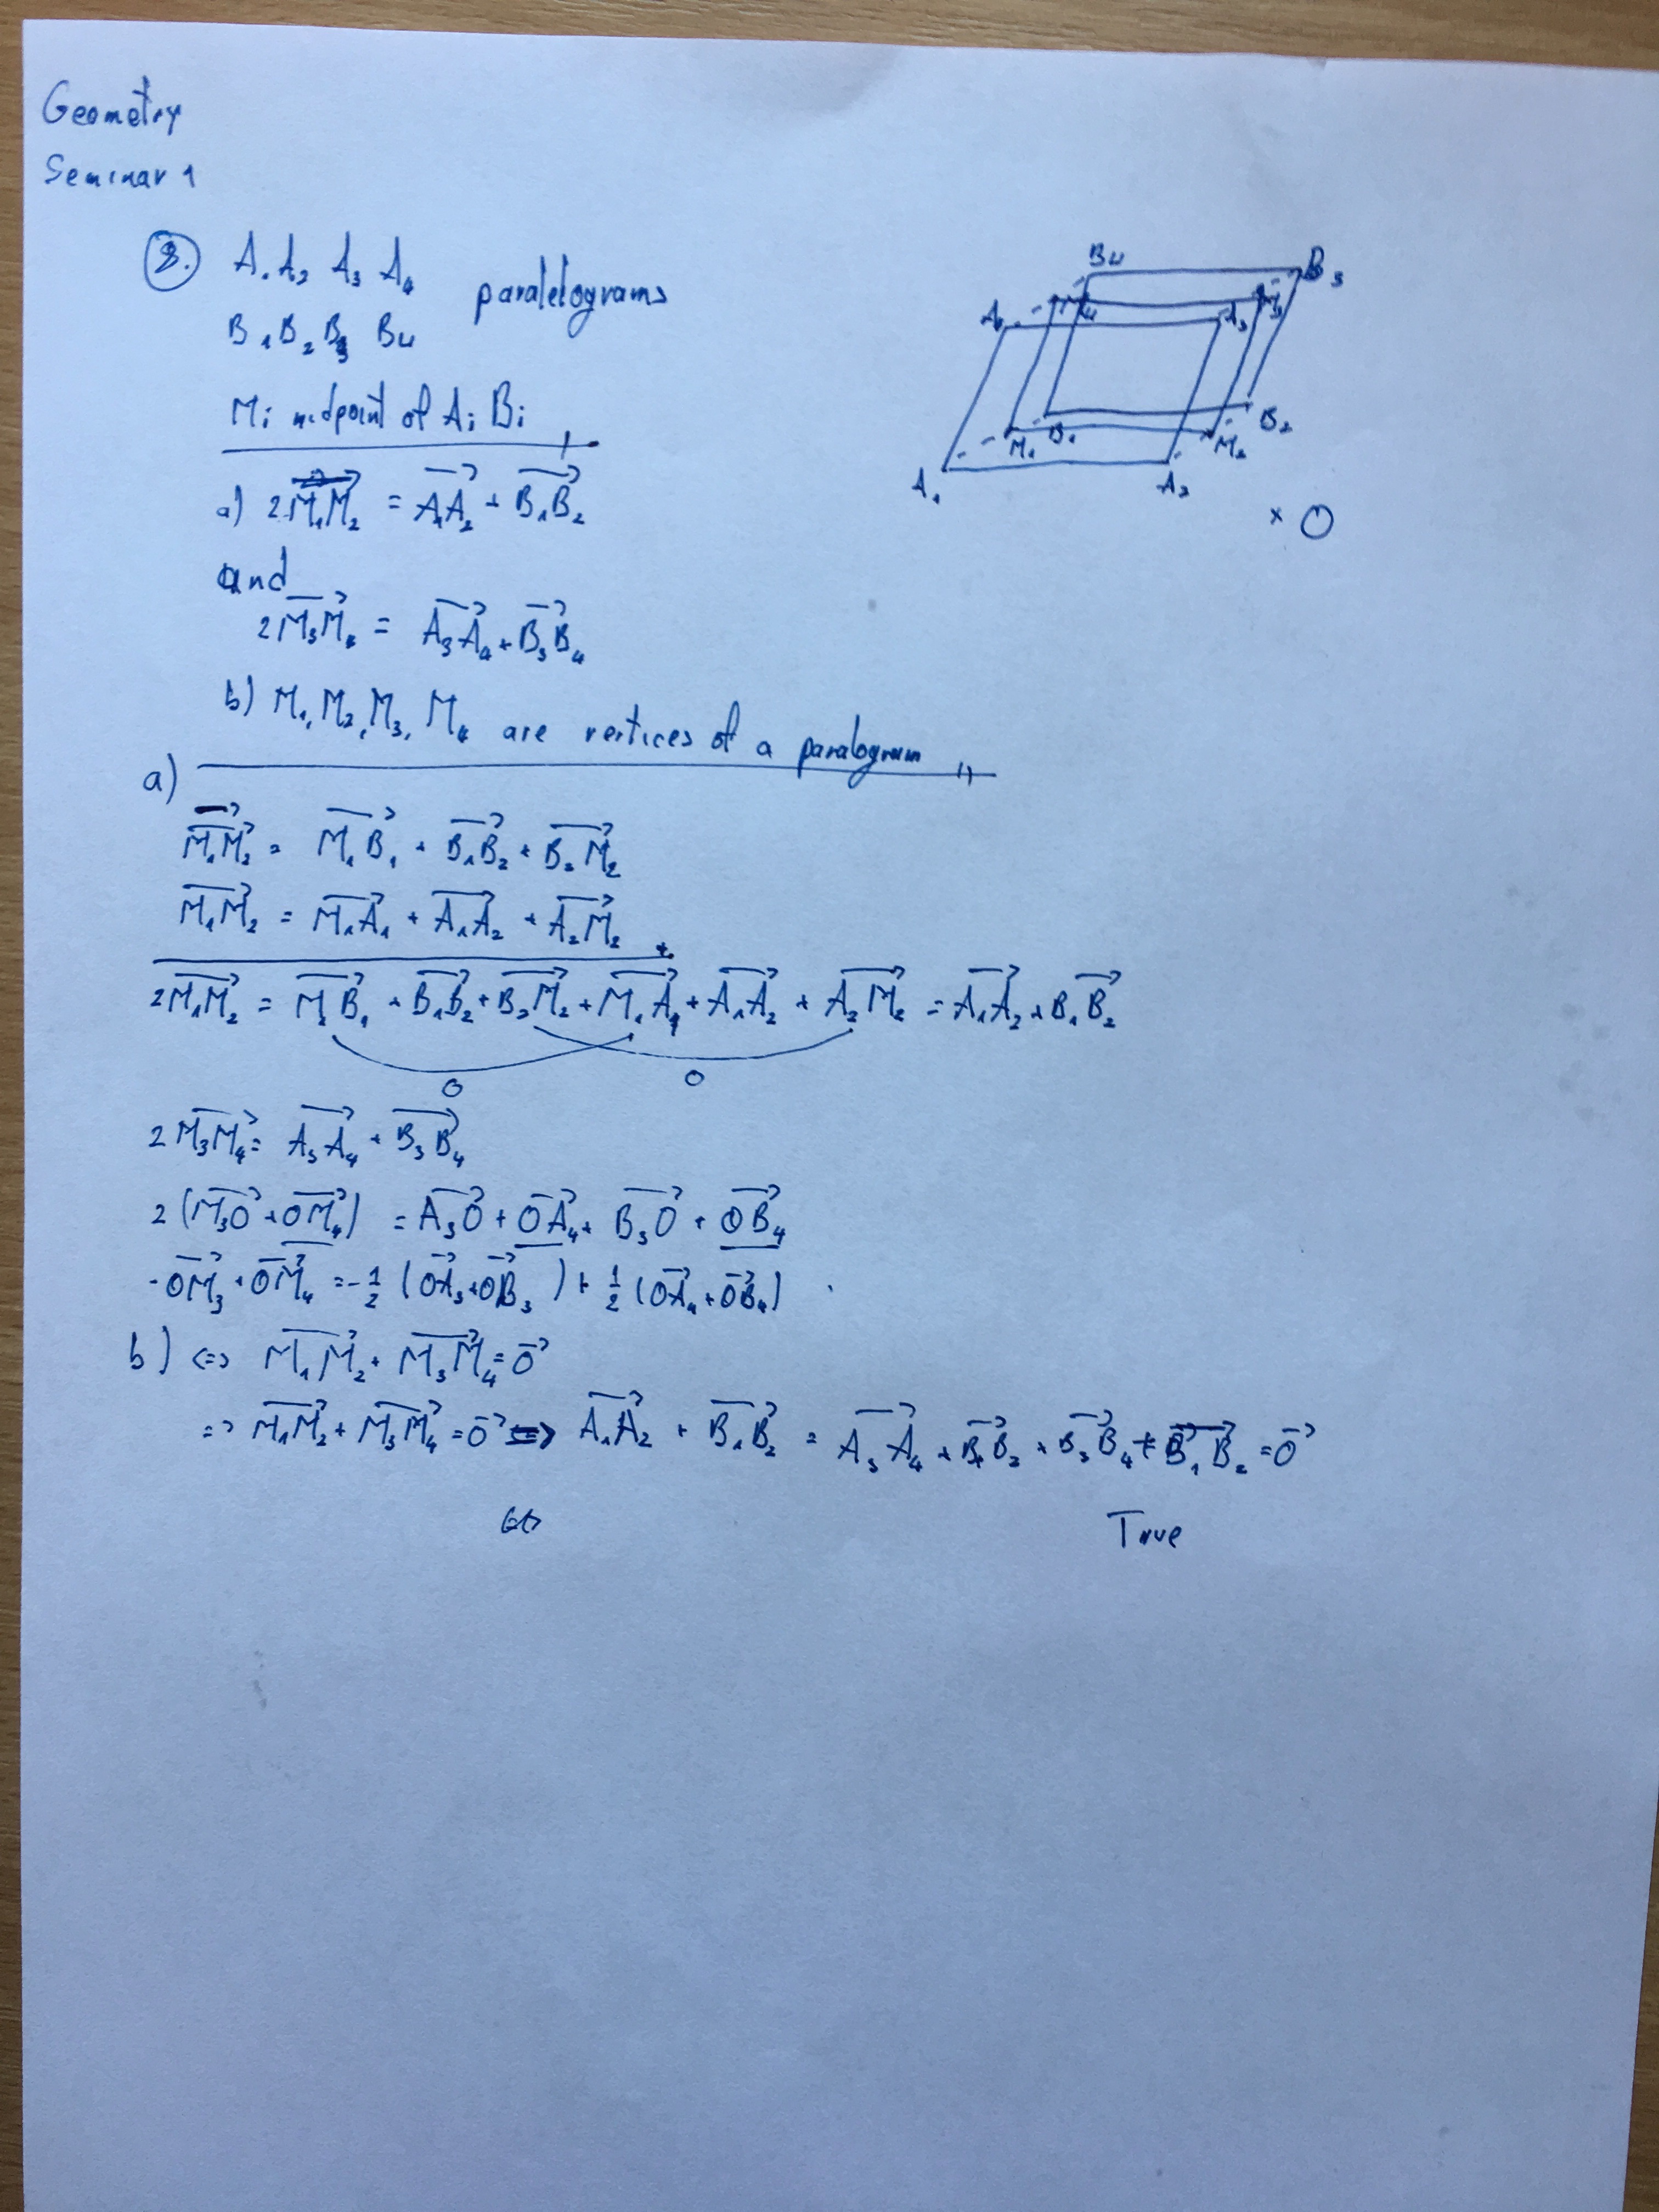 Geometry
Seminar 1
8. A₁A₂ A₃ A₄
paralelograms
B₁B₂B₃ B₄
Mi midpoint of Ai Bi
a) 2M₁M₂ = A₁A₂ + B₁B₂
and
2M₃M₄ = A₃A₄ + B₃B₄
b) M₁, M₂, M₃, M₄ are vertices of a paralogram
B₄ B₃
A₄ M₄ A₃ M₃
M₁ B₁ M₂ B₂
A₁ A₂
× O
a)
M₁M₂ = M₁B₁ + B₁B₂ + B₂M₂
M₁M₂ = M₁A₁ + A₁A₂ + A₂M₂ +
2M₁M₂ = M₁B₁ + B₁B₂ + B₂M₂ + M₁A₁ + A₁A₂ + A₂M₂ = A₁A₂ + B₁B₂
0 0
2M₃M₄ = A₃A₄ + B₃B₄
2(M₃O + OM₄) = A₃O + OA₄ + B₃O + OB₄
-OM₃ + OM₄ = -1/2 (OA₃ + OB₃) + 1/2 (OA₄ + OB₄)
b) <=> M₁M₂ + M₃M₄ = 0
=> M₁M₂ + M₃M₄ = 0 <=> A₁A₂ + B₁B₂ = A₃A₄ + B₁B₂ + B₃B₄ + B₁B₂ = 0
True